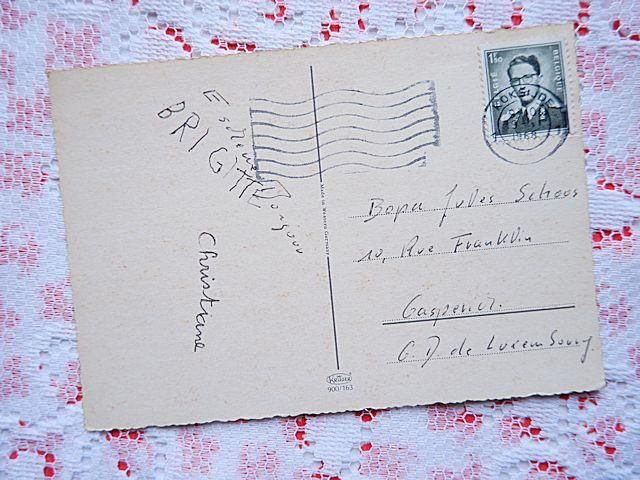 BRIGITTE
Bonjour
Christiane
Made in Western Germany
Krüger
900/163
1F50
BELGIQUE
KOKSIJDE
1968
Bopa Jules Schoos
10, Rue Franklin
Gasperich.
G. D de Luxembourg